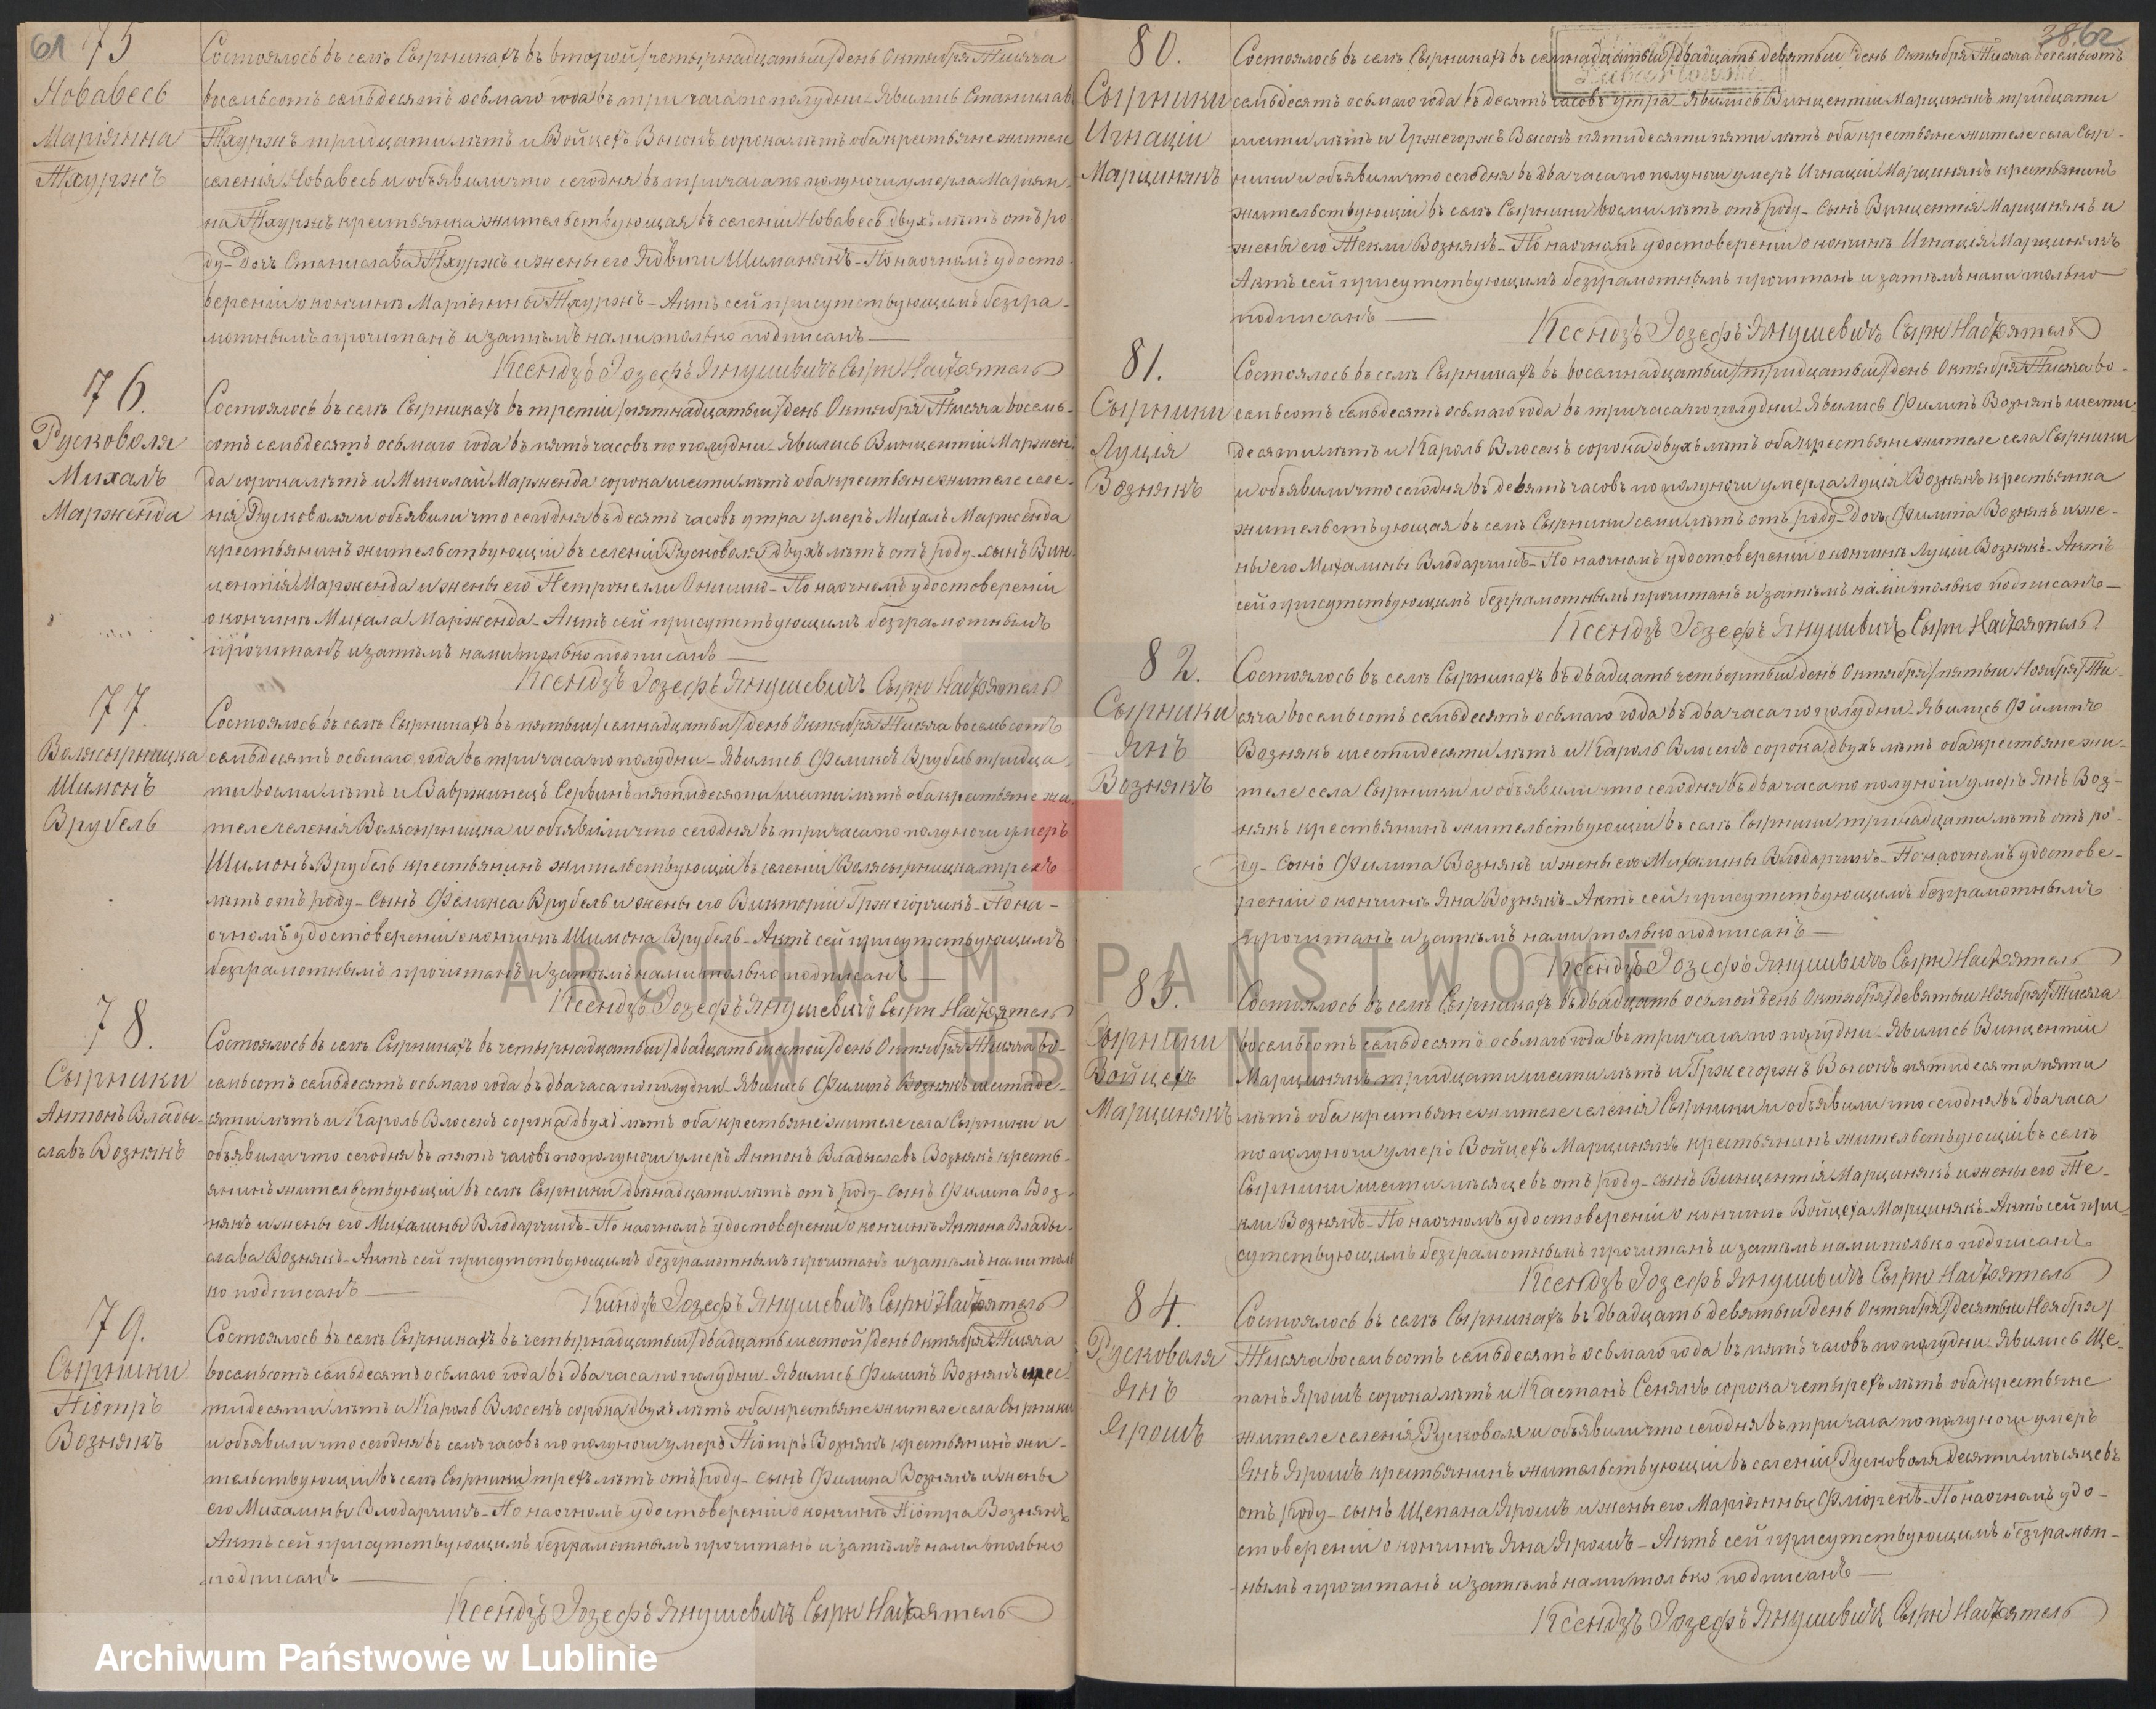 61
75
Новавесь
Маріянна
Тхуржъ
Состоялось въ селѣ Сырникахъ въ второй/четырнадцатый/день Октября Тысяча
восемьсотъ семьдесятъ осьмаго года въ три часа пополудни_Явились Станиславъ
Тхуржъ тридцати лѣтъ и Войцехъ Высокъ сорока лѣтъ оба крестьяне жители
селенія Новавесь и объявили что сегодня въ три часа по полуночи умерла Маріян-
на Тхуржъ крестьянка жительствующая въ селеніи Новавесь двухъ лѣтъ отъ ро-
ду_дочь Станислава Тхуржъ и жены его Ядвиги Шиманякъ_По наочномъ удосто-
вереніи о кончинѣ Маріянны Тхуржъ_Актъ сей присутствующимъ безгра-
мотнымъ прочитанъ и затѣмъ нами только подписанъ
Ксендзъ Іозефъ Янушевичъ Сырн Настоятель
76.
Русковоля
Михалъ
Марженда
Состоялось въ селѣ Сырникахъ въ третій/пятнадцатый/день Октября Тысяча восемь-
сотъ семьдесятъ осьмаго года въ пять часовъ по полудни_Явились Винцентій Моржен-
да сорока лѣтъ и Миколай Марженда сорока шести лѣтъ оба крестьяне жителе селе-
нія Русковоля и объявили что сегодня въ десять часовъ утра умеръ Михалъ Марженда
крестьянинъ жительствующій въ селеніи Русковоля двухъ лѣтъ отъ роду_сынъ Вин-
центія Марженда и жены его Петронелли Онишко_По наочномъ удостовереніи
о кончинѣ Михала Марженда_Актъ сей присутствующимъ безграмотнымъ
прочитанъ и затѣмъ нами только подписанъ
Ксендзъ Іозефъ Янушевичъ Сырн Настоятель
77.
Волясырницка
Шимонъ
Врубель
Состоялось въ селѣ Сырникахъ въ пятый/семнадцатый/день Октября Тысяча восемьсотъ
семьдесятъ осьмаго года въ три часа по полудни_Явились Феликсъ Врубель тридца-
ти восьми лѣтъ и Вавржинецъ пятидесяти шести лѣтъ оба крестьяне жи-
теле селенія Волясырницка и объявили что сегодня въ три часа по полуночи умеръ
Шимонъ Врубель крестьянинъ жительствующій въ селеніи Волясырницка трехъ
лѣтъ отъ роду_сынъ Феликса Врубель и жены его Викторіи Гржегорчикъ_По на-
очномъ удостовереніи о кончинѣ Шимона Врубель_Актъ сей присутствующимъ
безграмотнымъ прочитанъ и затѣмъ нами только подписанъ
Ксендзъ Іозефъ Янушевичъ Сырн Настоятель
78.
Сырники
Антонъ Влады-
славъ Вознякъ
Состоялось въ селѣ Сырникахъ въ четырнадцатый/двадцать шестой/день Октября Тысяча во-
семьсотъ семьдесятъ осьмаго года въ два часа по полудни_Явились Филипъ Вознякъ шестиде-
сяти лѣтъ и Кароль Влосекъ сорока двухъ лѣтъ оба крестьяне жителе села Сырники и
объявили что сегодня въ пять часовъ по полуночи умеръ Антонъ Владыславъ Вознякъ кресть-
янинъ жительствующій въ селѣ Сырники двѣнадцати лѣтъ отъ роду_сынъ Филипа Воз-
някъ и жены его Михалины Влодарчикъ_По наочномъ удостовереніи о кончинѣ Антона Влады-
слава Вознякъ_Актъ сей присутствующимъ безграмотнымъ прочитанъ и затѣмъ нами толь
ко подписанъ
Ксендзъ Іозефъ Янушевичъ Сырн Настоятель
79.
Сырники
Піотръ
Вознякъ
Состоялось въ селѣ Сырникахъ въ четырнадцатый/двадцать шестой/день Октября Тысяча
восемьсотъ семьдесятъ осьмаго года въ два часа по полудни_Явились Филипъ Вознякъ шес-
тидесяти лѣтъ и Кароль Влосекъ сорока двухъ лѣтъ оба крестьяне жителе села Сырники
и объявили что сегодня въ семь часовъ по полуночи умеръ Піотръ Вознякъ крестьянинъ жи-
тельствующій въ селѣ Сырники трехъ лѣтъ отъ роду_сынъ Филипа Вознякъ и жены
его Михалины Влодарчикъ_По наочномъ удостовереніи о кончинѣ Піотра Вознякъ
Актъ сей присутствующимъ безграмотнымъ прочитанъ и затѣмъ нами только
подписанъ
Ксендзъ Іозефъ Янушевичъ Сырн Настоятель
38.62
80.
Сырники
Игнацій
Марцинякъ
Состоялось въ селѣ Сырникахъ въ семнадцатый/двадцать девятый/день Октября Тысяча восемьсотъ
семьдесятъ осьмаго года въ десять часовъ утра_Явились Винцентій Марцинякъ тридцати
шести лѣтъ и Гржегоржъ Высокъ пятидесяти пяти лѣтъ оба крестьяне жителе села Сыр-
ники и объявили что сегодня въ два часа по полуночи умеръ Игнацій Марцинякъ крестьянинъ
жительствующій въ селѣ Сырники восьми лѣтъ отъ роду_сынъ Винцентія Марцинякъ и
жены его Текли Вознякъ_По наочномъ удостовереніи о кончинѣ Игнація Марцинякъ
Актъ сей присутствующимъ безграмотнымъ прочитанъ и затѣмъ нами только
подписанъ
Ксендзъ Іозефъ Янушевичъ Сырн Настоятель
81.
Сырники
Луція
Вознякъ
Состоялось въ селѣ Сырникахъ въ восемнадцатый/тридцатый/день Октября Тысяча во-
семьсотъ семьдесятъ осьмаго года въ три часа по полудни_Явились Филипъ Вознякъ шести-
десяти лѣтъ и Кароль Влосекъ сорока двухъ лѣтъ оба крестьяне жителе села Сырники
и объявили что сегодня въ девять часовъ по полуночи умерла Луція Вознякъ крестьянка
жительствующая въ селѣ Сырники семи лѣтъ отъ роду_дочь Филипа Вознякъ и же-
ны его Михалины Влодарчикъ_По наочномъ удостовереніи о кончинѣ Луціи Вознякъ_Актъ
сей присутствующимъ безграмотнымъ прочитанъ и затѣмъ нами только подписанъ
Ксендзъ Іозефъ Янушевичъ Сырн Настоятель
82.
Сырники
Янъ
Вознякъ
Состоялось въ селѣ Сырникахъ въ двадцать четвертый/день Октября/пятый Ноября/Ты-
сяча восемьсотъ семьдесятъ осьмаго года въ два часа по полудни_Явились Филипъ
Вознякъ шестидесяти лѣтъ и Кароль Влосекъ сорока двухъ лѣтъ оба крестьяне жи-
теле села Сырники и объявили что сегодня въ два часа по полуночи умеръ Янъ Воз-
някъ крестьянинъ жительствующій въ селѣ Сырники тринадцати лѣтъ отъ ро-
ду_сынъ Филипа Вознякъ и жены его Михалины Влодарчикъ_По наочномъ удостове-
реніи о кончинѣ Яна Вознякъ_Актъ сей присутствующимъ безграмотнымъ
прочитанъ и затѣмъ нами только подписанъ
Ксендзъ Іозефъ Янушевичъ Сырн Настоятель
83.
Сырники
Войцехъ
Марцинякъ
Состоялось въ селѣ Сырникахъ въ двадцать осьмой день Октября/девятый Ноября/Тысяча
восемьсотъ семьдесятъ осьмаго года въ три часа по полудни_Явились Винцентій
Марцинякъ тридцати шести лѣтъ и Гржегоржъ Высокъ пятидесяти пяти
лѣтъ оба крестьяне жителе селенія Сырники и объявили что сегодня въ два часа
по полуночи умеръ Войцехъ Марцинякъ крестьянинъ жительствующій въ селѣ
Сырники шести мѣсяцевъ отъ роду_сынъ Винцентія Марцинякъ и жены его Те-
кли Вознякъ_По наочномъ удостовереніи о кончинѣ Войцеха Марцинякъ_Актъ сей при-
сутствующимъ безграмотнымъ прочитанъ и затѣмъ нами только подписанъ
Ксендзъ Іозефъ Янушевичъ Сырн Настоятель
84.
Русковоля
Янъ
Ярошъ
Состоялось въ селѣ Сырникахъ въ двадцать девятый день Октября/десятый Ноября/
Тысяча восемьсотъ семьдесятъ осьмаго года въ пять часовъ по полудни_Явились Ще-
панъ Ярошъ сорока лѣтъ и Каетанъ Сенякъ сорока четырехъ лѣтъ оба крестьяне
жителе селенія Русковоля и объявили что сегодня въ три часа по полуночи умеръ
Янъ Ярошъ крестьянинъ жительствующій въ селеніи Русковоля десяти мѣсяцевъ
отъ роду_сынъ Щепана Ярошъ и жены его Маріянны Флорекъ_По наочномъ удо-
стовереніи о кончинѣ Яна Ярошъ_Актъ сей присутствующимъ безграмот-
нымъ прочитанъ и затѣмъ нами только подписанъ
Ксендзъ Іозефъ Янушевичъ Сырн Настоятель
ARCHIWUM PAŃSTWOWE
W LUBLINIE
Archiwum Państwowe w Lublinie